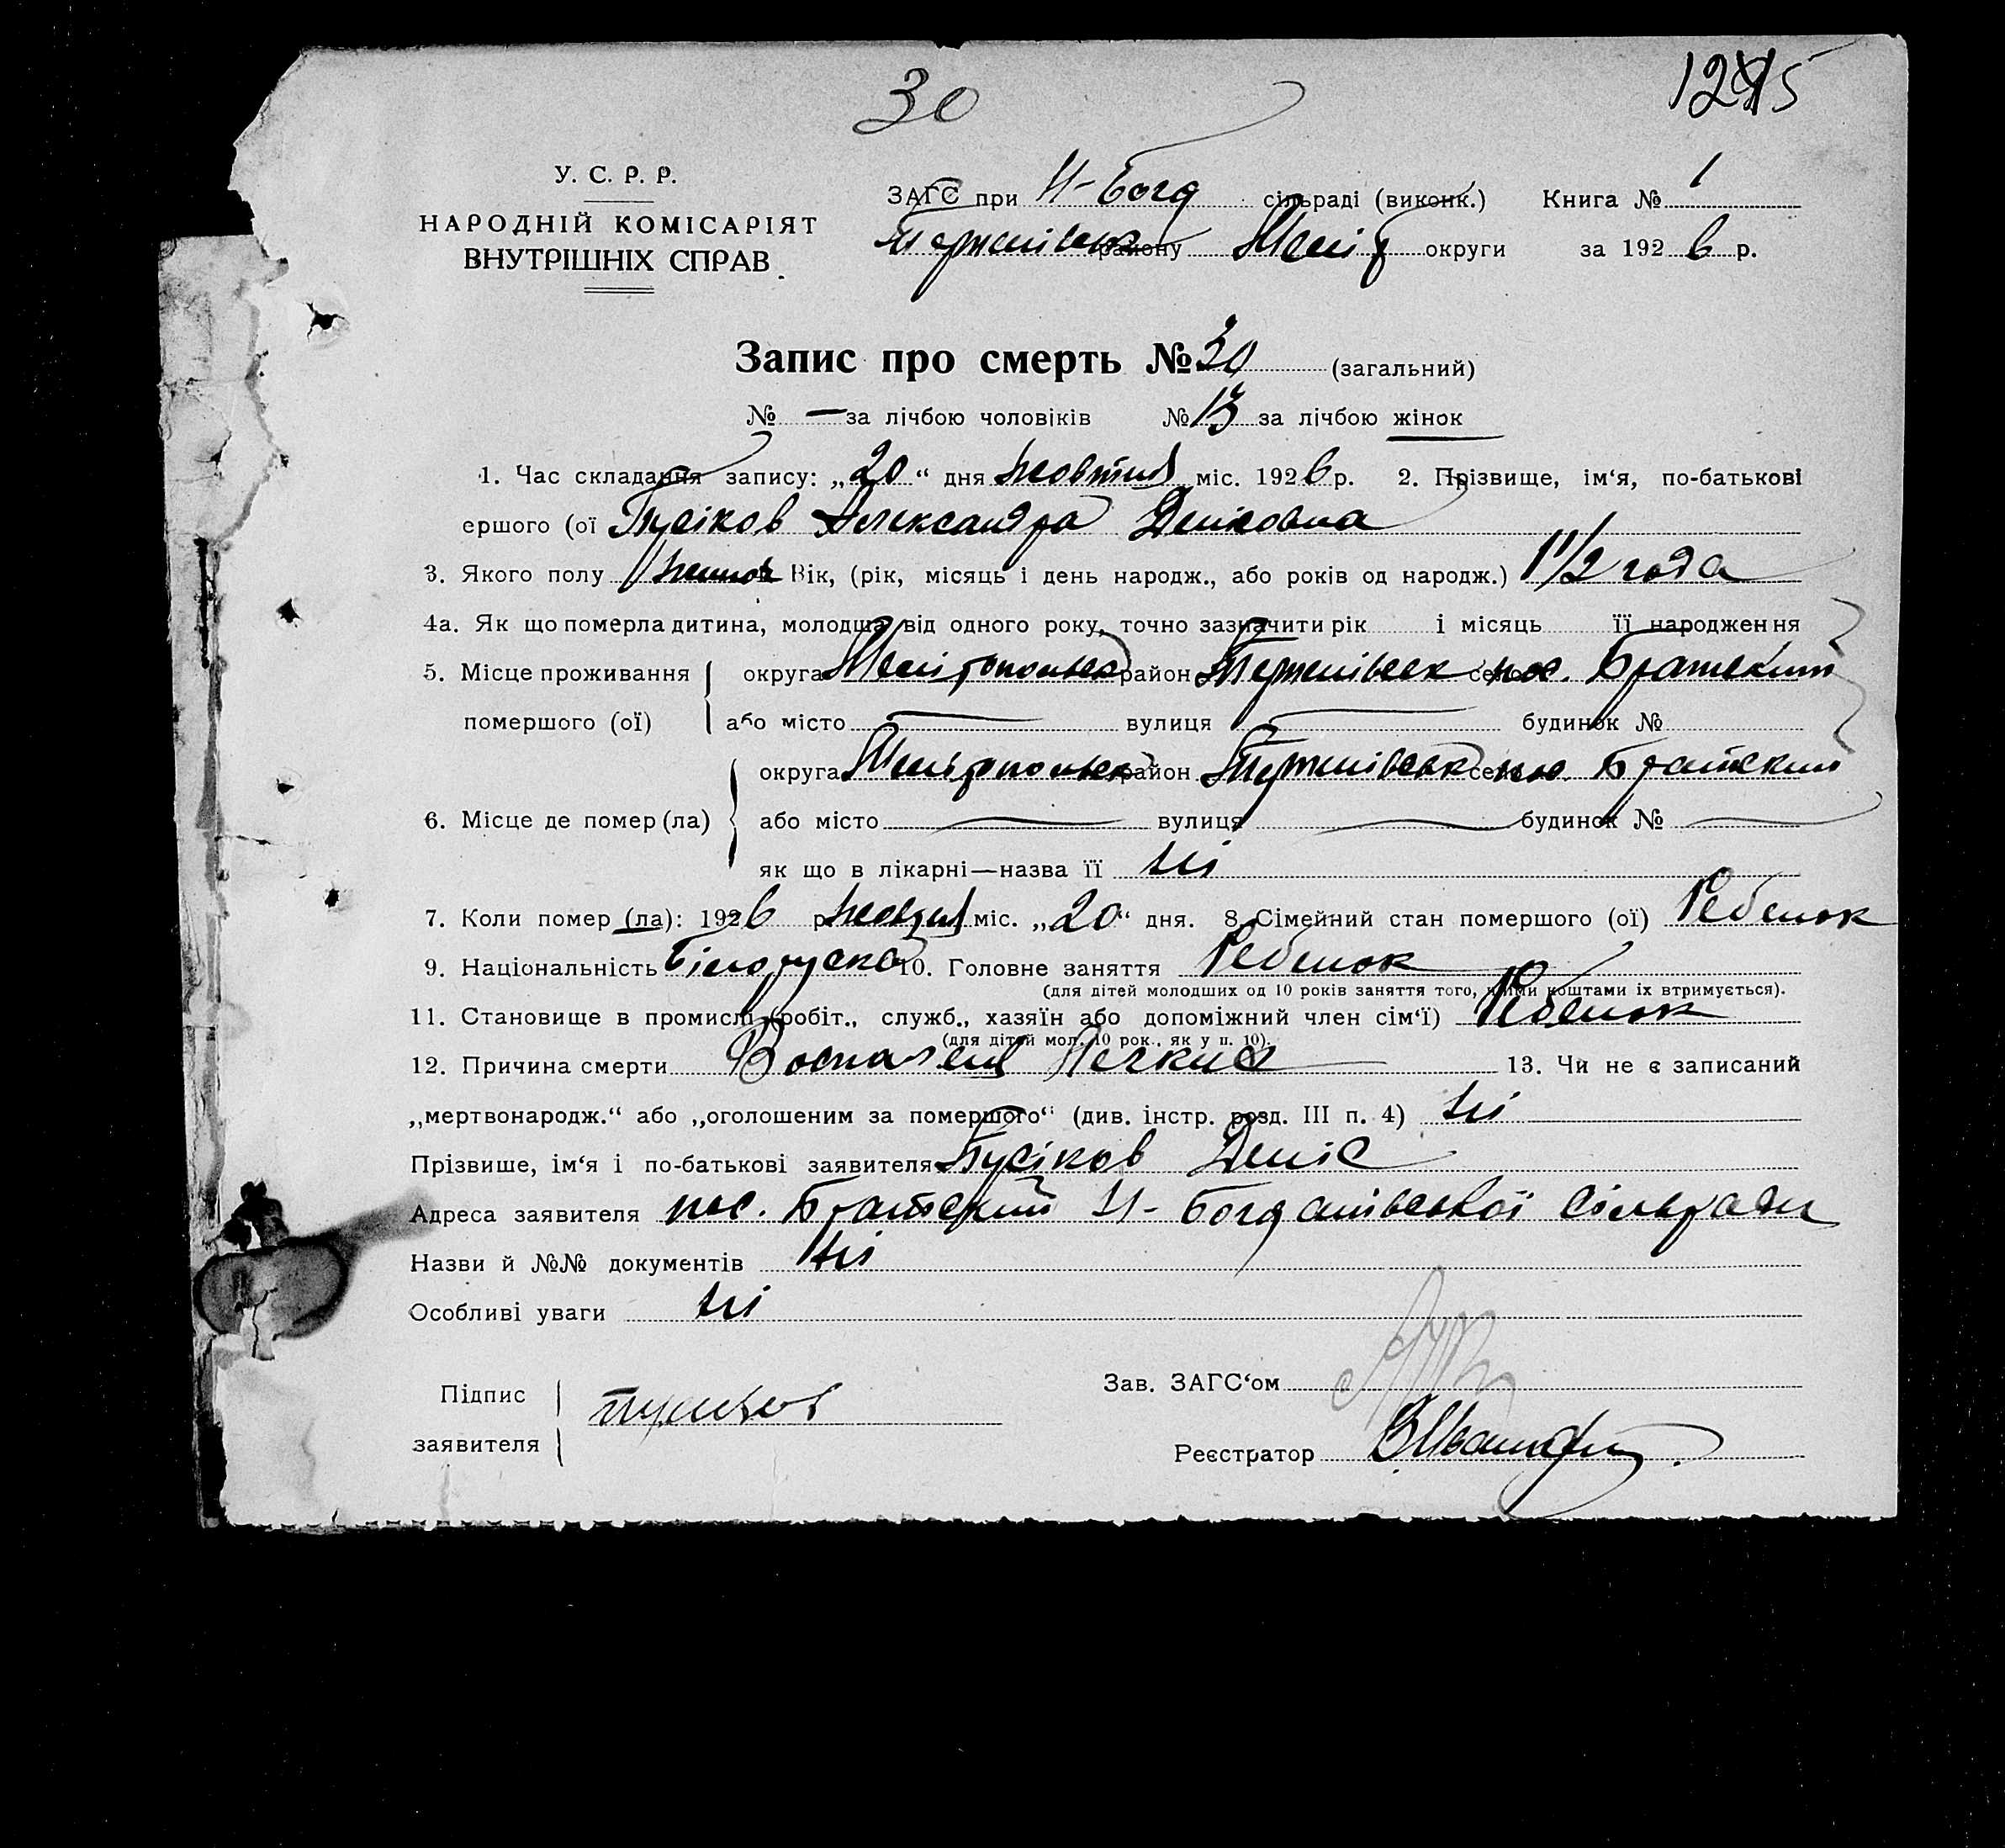 30
У. С. Р. Р.
НАРОДНІЙ КОМІСАРІЯТ
ВНУТРІШНІХ СПРАВ
ЗАГС при Н-Богд сільраді (виконк.) Книга № 1
Терпенівськ району Меліт округи за 1926 р.
Запис про смерть № 30 (загальний)
№ — за лічбою чоловіків № 13 за лічбою жінок
1. Час складання запису: „20“ дня жовтня міс. 1926 р. 2. Прізвище, ім‘я, по-батькові
ершого (ої Гусіков Александра Денісовна
3. Якого полу жіноч Вік, (рік, місяць і день народж., або років од народж.) 1 1/2 года
4а. Як що померла дитина, молодша від одного року, точно зазначити рік і місяць її народження
5. Місце проживання округа Мелітопольск район Терпенівськ село пос. Братский
помершого (ої) або місто — вулиця — будинок №
округа Мелітопольск район Терпенівськ село пос. Братский
6. Місце де помер (ла) або місто — вулиця — будинок № —
як що в лікарні—назва її ні
7. Коли помер (ла): 1926 р жовтня міс. „20“ дня. 8. Сімейний стан помершого (ої) Ребенок
9. Національність Білоруска 10. Головне заняття Ребенок
(для дітей молодших од 10 років заняття того, чиїми коштами їх втримується).
11. Становище в промислі (робіт., служб., хазяїн або допоміжний член сім‘ї) Ребенок
(для дітей мол. 10 рок., як у п. 10).
12. Причина смерти Воспаленя Легких 13. Чи не є записаний
„мертвонародж.“ або „оголошеним за помершого“ (див. інстр. розд. III п. 4) ні
Прізвише, ім‘я і по-батькові заявителя Гусіков Деніс
Адреса заявителя пос. Братский Н-Богданівської сільради
Назви й №№ документів ні
Особливі уваги ні
Підпис
заявителя
Зав. ЗАГС‘ом
Реєстратор